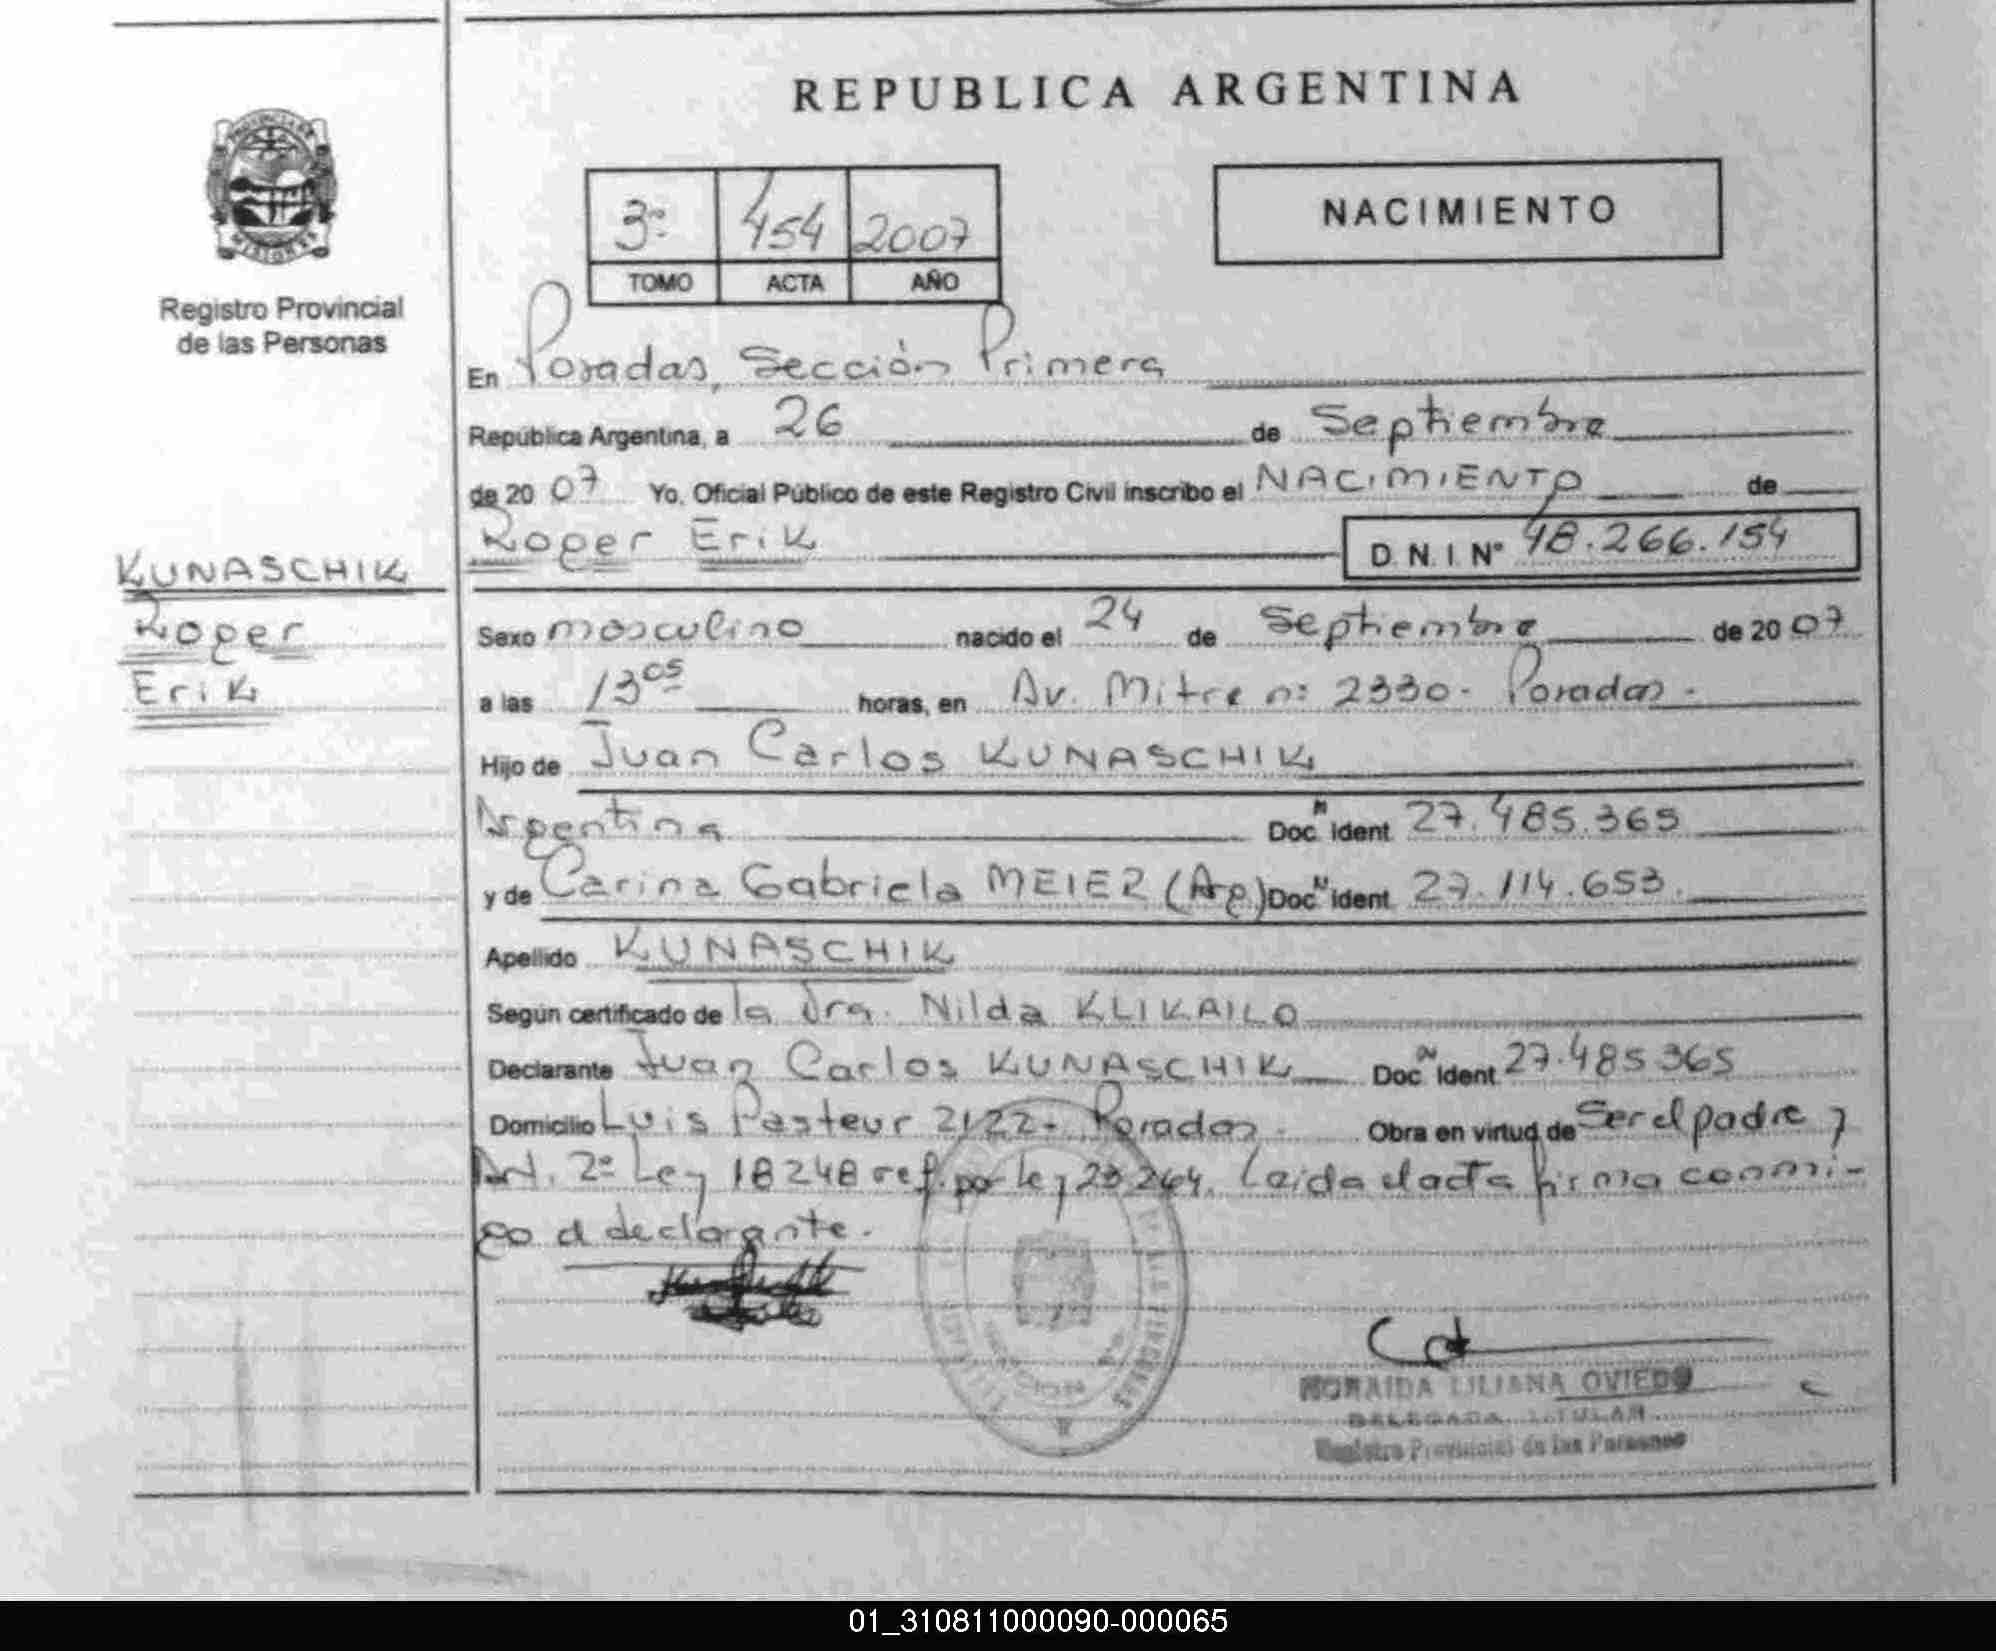 REPUBLICA ARGENTINA
PROVINCIA DE
MISIONES
Registro Provincial
de las Personas
3º 454 2007
TOMO ACTA AÑO
NACIMIENTO
En Posadas, Sección Primera
República Argentina, a 26 de Septiembre
de 20 07 Yo, Oficial Público de este Registro Civil inscribo el NACIMIENTO de
Roger Erik D.N.I. Nº 48.266.154
KUNASCHIK
Roger
Erik
Sexo masculino nacido el 24 de Septiembre de 20 07
a las 13 05 horas, en Av. Mitre nº 2330 - Posadas -
Hijo de Juan Carlos KUNASCHIK
Argentina Doc. N Ident 27.485.365
y de Carina Gabriela MEIER (Arg) Doc. N Ident 27.114.653.
Apellido KUNASCHIK
Según certificado de la Dra. Nilda KLIKAILO
Declarante Juan Carlos KUNASCHIK Doc. N Ident 27.485 365
Domicilio Luis Pasteur 2122 - Posadas - Obra en virtud de Ser el padre y
Art. 2º Ley 18248 ref. por ley 23264. Leida el acta firma conmi-
go el declarante.
LILIANA OVIEDO
DELEGADA TITULAR
Registro Provincial de las Personas
01_310811000090-000065